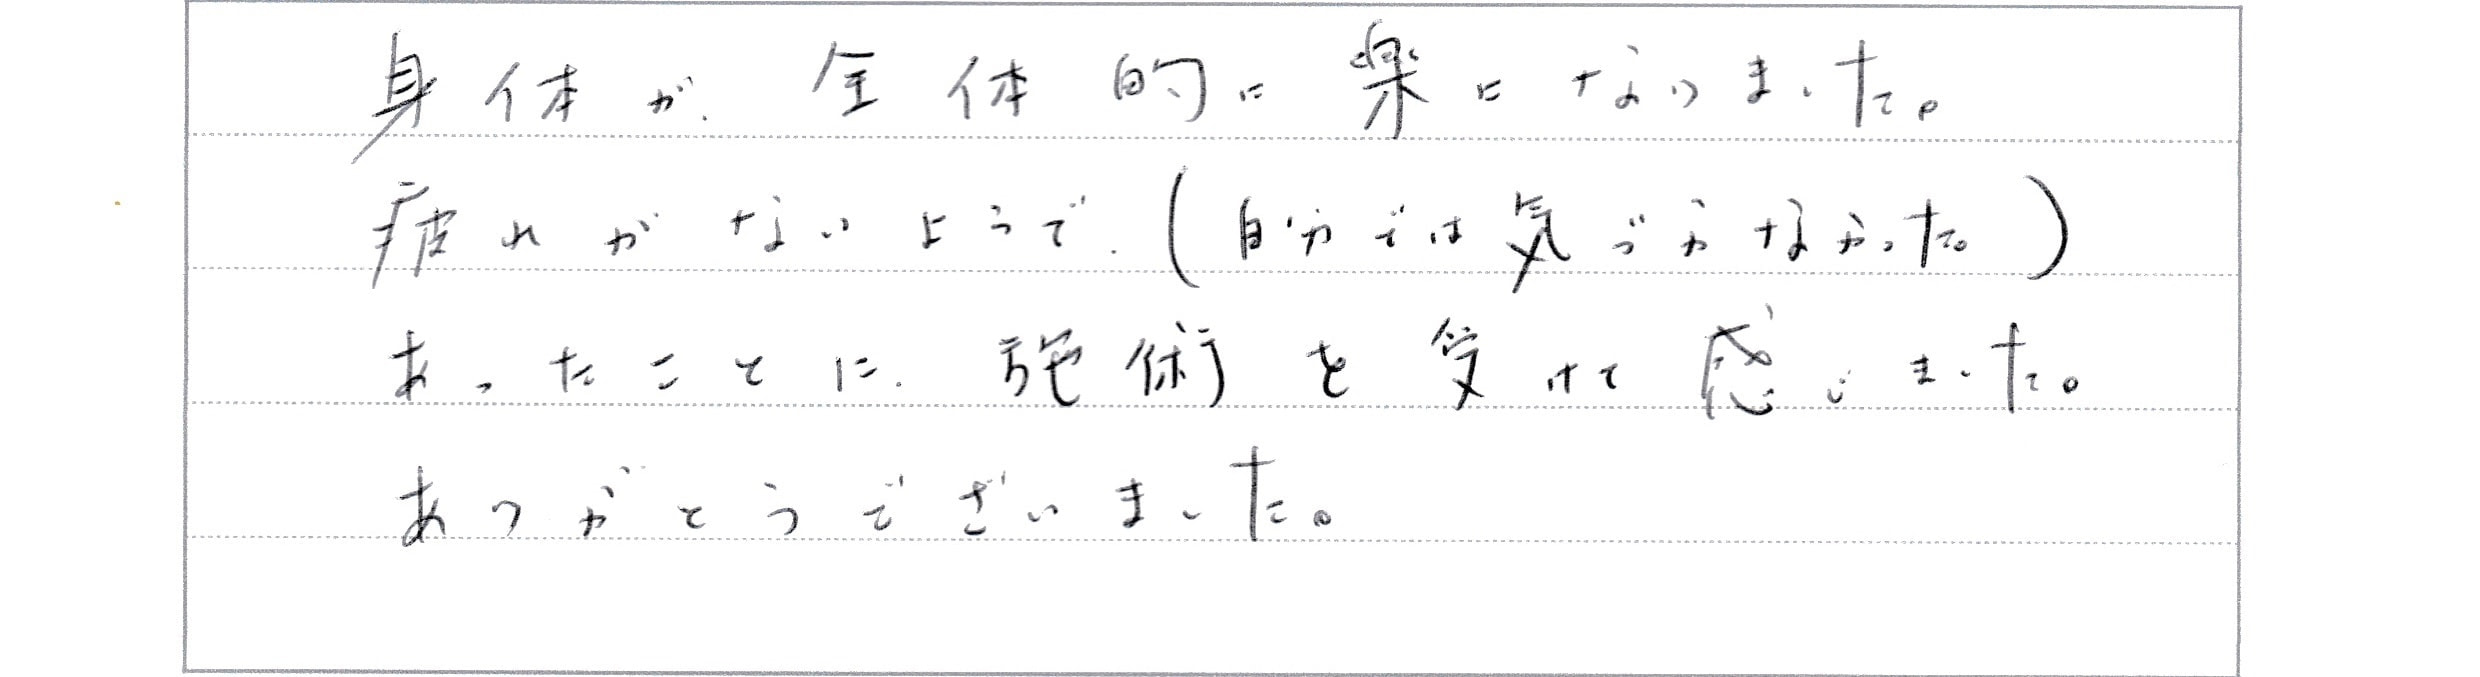 身体が、全体的に楽になりました。
疲れがないようで、(自分では気づかなかった。)
あったことに、施術を受けて感じました。
ありがとうございました。